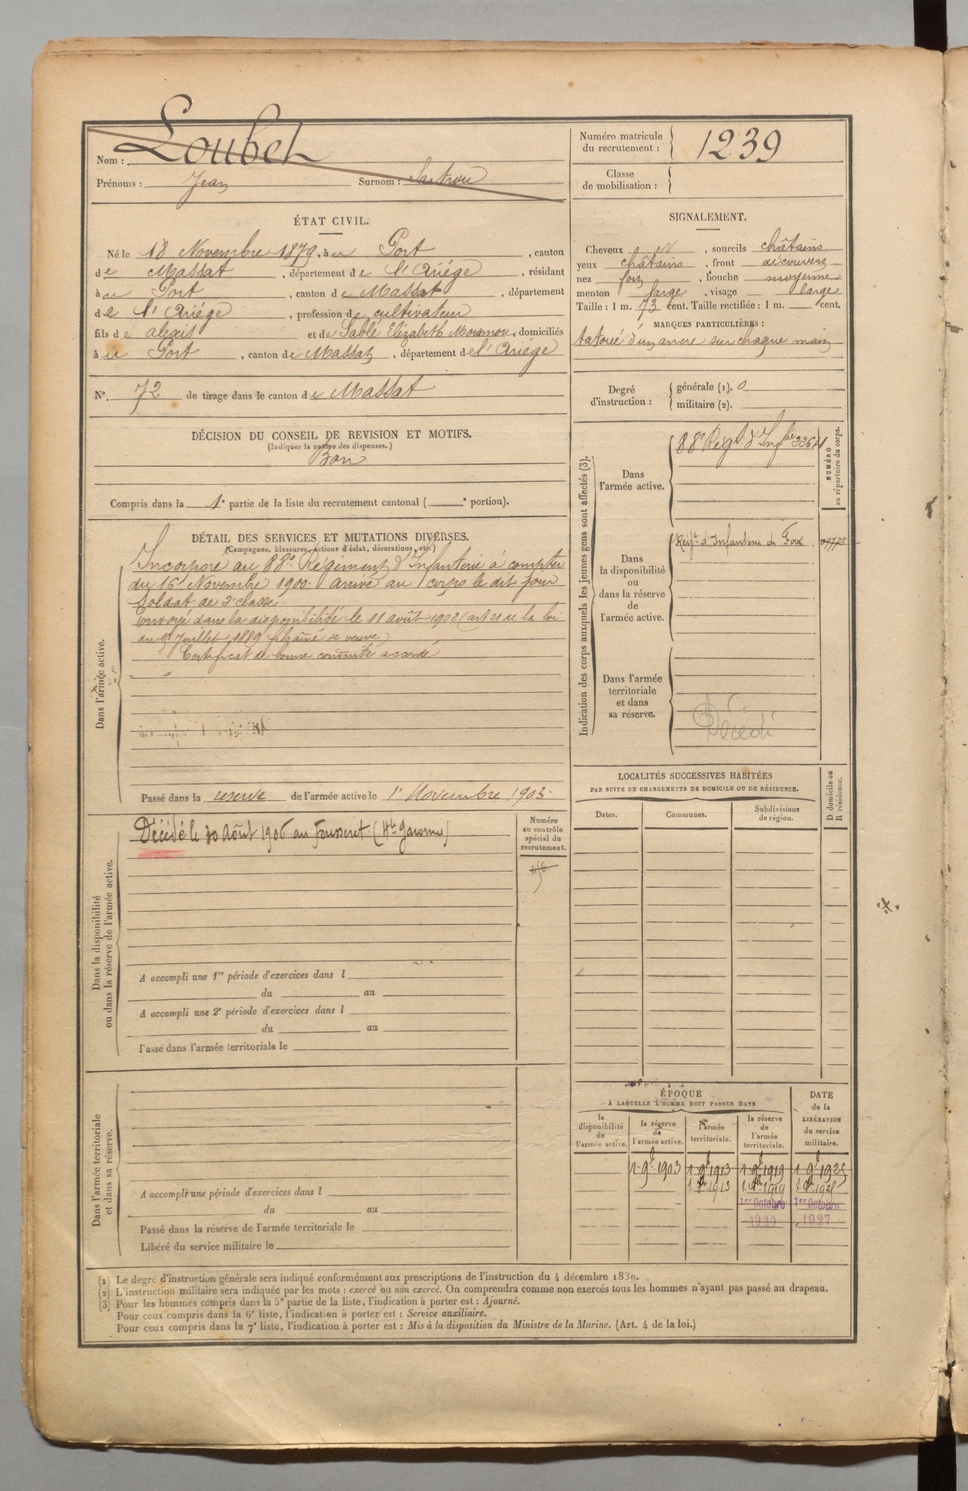 Nom : Loubet
Prénoms : Jean Surnom :
Numéro matricule du recrutement : 1239
Classe de mobilisation :
ÉTAT CIVIL.
Né le 18 Novembre 1879, à u Port, canton
de Massat, département de l'Ariége, résidant
à u Port, canton de Massat, département
de l'Ariége, profession de cultivateur
fils de et de Sablé Elizabeth, domiciliés
à u Port, canton de Massat, département de l'Ariége
N° 72 de tirage dans le canton de Massat
SIGNALEMENT.
Cheveux N, sourcils châtains
yeux châtains, front découvert
nez fort, bouche moyenne
menton large, visage large
Taille : 1 m. 73 cent. Taille rectifiée : 1 m. cent.
MARQUES PARTICULIÈRES :
tatoué d'un ancre sur chaque main
Degré d'instruction : générale (1). 0
militaire (2).
DÉCISION DU CONSEIL DE REVISION ET MOTIFS.
(Indiquer la nature des dispenses.)
Bon
Compris dans la 1e partie de la liste du recrutement cantonal ( e portion).
DÉTAIL DES SERVICES ET MUTATIONS DIVERSES.
(Campagnes, blessures, actions d'éclat, décorations, etc.)
Dans l'armée active.
Incorporé au 88e Régiment d'Infanterie à compter
du 16 Novembre 1900 arrivé au corps le dit jour
soldat de 2e classe.
Envoyé dans la disponibilité le 11 août 1902 (art 21 de la loi
du Juillet 1889 fils aîné de veuve)
Certificat de bonne conduite accordé
Passé dans la reserve de l'armée active le 1r Novembre 1903
Indication des corps auxquels les jeunes gens sont affectés (3).
NUMÉRO au répertoire du corps.
Dans l'armée active.
88e Régt d'Infrie
Dans la disponibilité ou dans la réserve de l'armée active.
Regt d'Infanterie de Foix
Dans l'armée territoriale et dans sa réserve.
Décédé
LOCALITÉS SUCCESSIVES HABITÉES
PAR SUITE DE CHANGEMENTS DE DOMICILE OU DE RÉSIDENCE.
D domicile ou R résidence.
Dates. Communes. Subdivisions de région.
Dans la disponibilité ou dans la réserve de l'armée active.
Décédé le 30 Août 1906 au Fousseret (Hte Garonne)
Numéro au contrôle spécial du recrutement.
A accompli une 1re période d'exercices dans l
du au
A accompli une 2e période d'exercices dans l
du au
Passé dans l'armée territoriale le
Dans l'armée territoriale et dans sa réserve.
A accompli une période d'exercices dans l
du au
Passé dans la réserve de l'armée territoriale le
Libéré du service militaire le
ÉPOQUE
À LAQUELLE L'HOMME DOIT PASSER DANS
la disponibilité de l'armée active.
la réserve de l'armée active.
l'armée territoriale.
la réserve de l'armée territoriale.
DATE de la LIBÉRATION du service militaire.
1 9bre 1903 1 9bre 1913 1 9bre 1919 1 9bre 1925
1er Octobre 1er Octobre
1927
(1) Le degré d'instruction générale sera indiqué conformément aux prescriptions de l'instruction du 4 décembre 1889.
(2) L'instruction militaire sera indiquée par les mots : exercé ou non exercé. On comprendra comme non exercés tous les hommes n'ayant pas passé au drapeau.
(3) Pour les hommes compris dans la 5e partie de la liste, l'indication à porter est : Ajourné.
Pour ceux compris dans la 6e liste, l'indication à porter est : Service auxiliaire.
Pour ceux compris dans la 7e liste, l'indication à porter est : Mis à la disposition du Ministre de la Marine. (Art. 4 de la loi.)